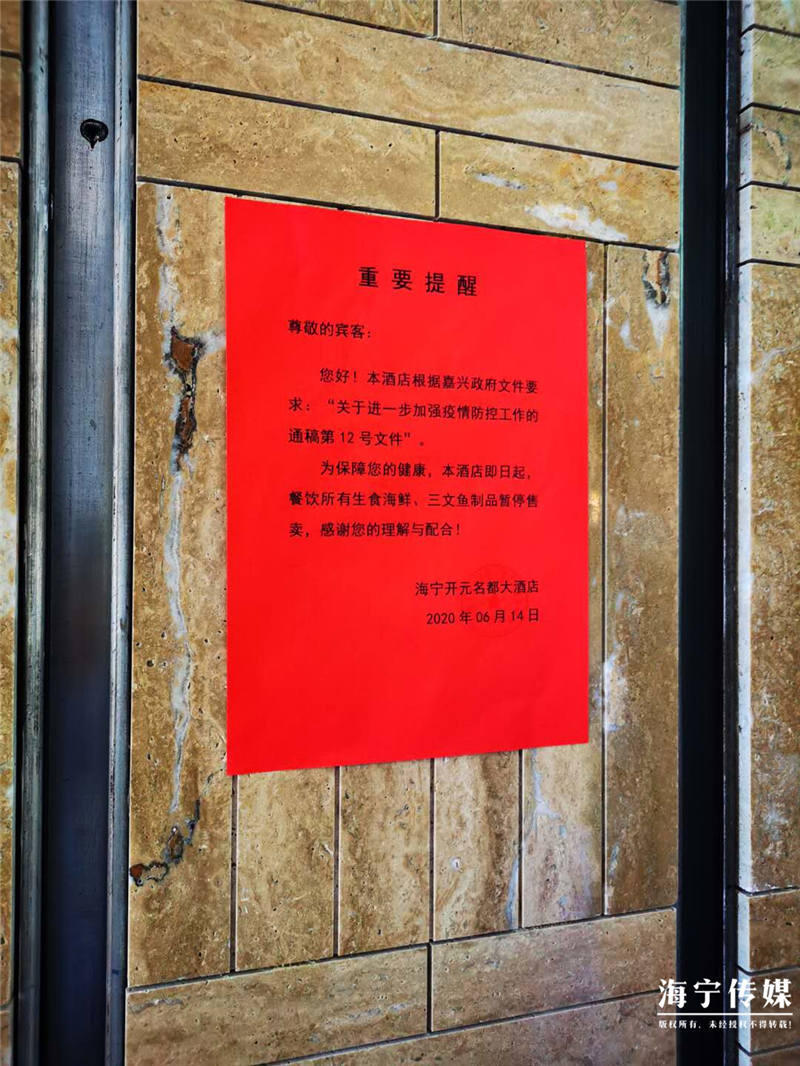 重要提醒
尊敬的宾客：
您好！本酒店根据嘉兴政府文件要
求：“关于进一步加强疫情防控工作的
通稿第12号文件”。
为保障您的健康，本酒店即日起，
餐饮所有生食海鲜、三文鱼制品暂停售
卖，感谢您的理解与配合！
海宁开元名都大酒店
2020年06月14日
海宁传媒
版权所有，未经授权不得转载！